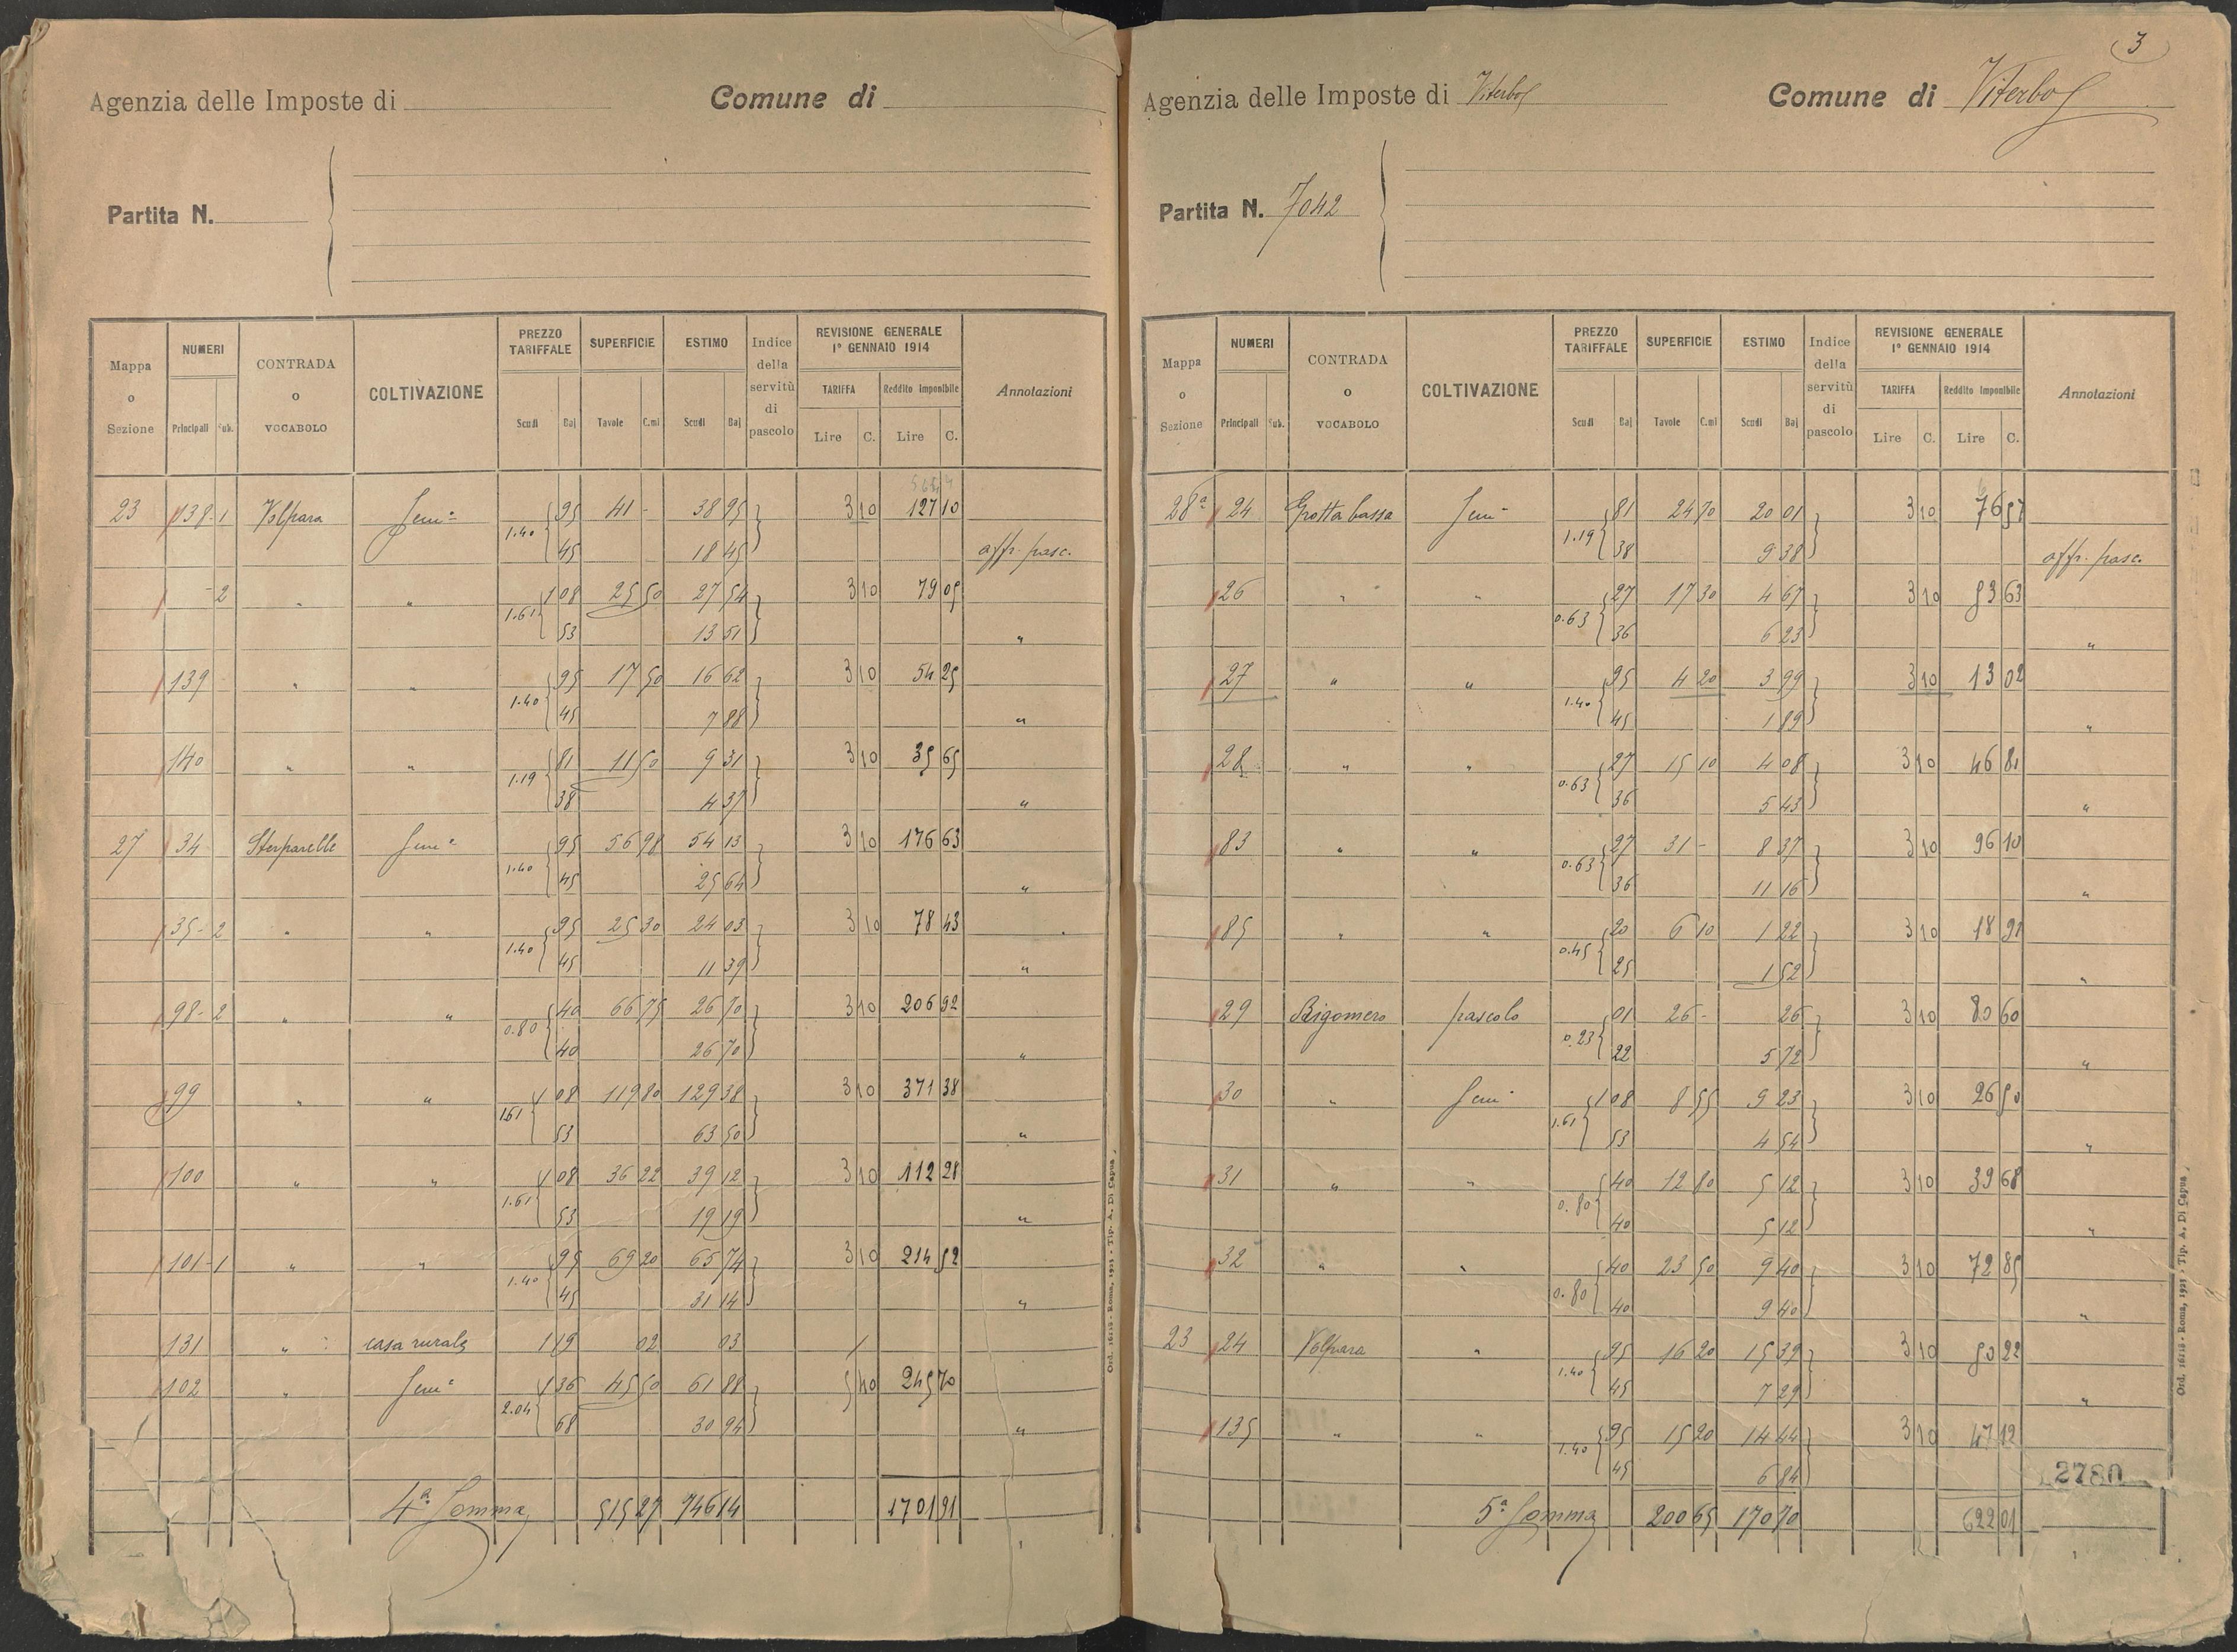 Agenzia delle Imposte di
Comune di
Partita N.
Mappa o Sezione
NUMERI
Principali Sub.
CONTRADA o VOCABOLO
COLTIVAZIONE
PREZZO TARIFFALE
Scudi Baj
SUPERFICIE
Tavole C.mi
ESTIMO
Scudi Baj
Indice della servitù di pascolo
REVISIONE GENERALE 1° GENNAIO 1914
TARIFFA
Lire C.
Reddito Imponibile
Lire C.
Annotazioni
23 138-1 Volpara Sem° 1.40 { 95 41 - 38 95 } 3 10 127 10
45 18 45 affr. pasc.
-2 " " 1.61 { 1 08 25 50 27 54 } 3 10 79 05
53 13 51 "
139 " " 1.40 { 95 17 50 16 62 } 3 10 54 25
45 7 88 "
140 " " 1.19 { 81 11 50 9 31 } 3 10 35 65
38 4 37 "
27 34 Sterparelle Sem° 1.40 { 95 56 98 54 13 } 3 10 176 63
45 25 64 "
35-2 " " 1.40 { 95 25 30 24 03 } 3 10 78 43
45 11 39 "
98-2 " " 0.80 { 40 66 75 26 70 } 3 10 206 92
40 26 70 "
99 " " 1.61 { 1 08 119 80 129 38 } 3 10 371 38
53 63 50 "
100 " " 1.61 { 1 08 36 22 39 12 } 3 10 112 28
53 19 19 "
101-1 " " 1.40 { 95 69 20 65 74 } 3 10 214 52
45 31 14 "
131 " casa rurale 1 19 02 03 /
102 " Sem° 2.04 { 1 36 45 50 61 88 } 5 40 245 70
68 30 94 "
4ª Somma 515 27 746 14 1701 91
Ord. 16118 - Roma, 1921 - Tip. A. Di Capua
3
Agenzia delle Imposte di Viterbo
Comune di Viterbo
Partita N. 7042
Mappa o Sezione
NUMERI
Principali Sub.
CONTRADA o VOCABOLO
COLTIVAZIONE
PREZZO TARIFFALE
Scudi Baj
SUPERFICIE
Tavole C.mi
ESTIMO
Scudi Baj
Indice della servitù di pascolo
REVISIONE GENERALE 1° GENNAIO 1914
TARIFFA
Lire C.
Reddito Imponibile
Lire C.
Annotazioni
28ª 24 Grotta bassa Sem° 1.19 { 81 24 70 20 01 } 3 10 76 57
38 9 38 affr. pasc.
26 " " 0.63 { 27 17 30 4 67 } 3 10 53 63
36 6 23 "
27 " " 1.40 { 95 4 20 3 99 } 3 10 13 02
45 1 89 "
28 " " 0.63 { 27 15 10 4 08 } 3 10 46 81
36 5 43 "
83 " " 0.63 { 27 31 - 8 37 } 3 10 96 10
36 11 16 "
85 " " 0.45 { 20 6 10 1 22 } 3 10 18 91
25 1 52 "
29 Rigomero pascolo 0.23 { 01 26 - 26 } 3 10 80 60
22 5 72 "
30 " Sem° 1.61 { 1 08 8 55 9 23 } 3 10 26 50
53 4 54 "
31 " " 0.80 { 40 12 80 5 12 } 3 10 39 68
40 5 12 "
32 " " 0.80 { 40 23 50 9 40 } 3 10 72 85
40 9 40 "
23 24 Volpara " 1.40 { 95 16 20 15 39 } 3 10 50 22
45 7 29 "
135 " " 1.40 { 95 15 20 14 44 } 3 10 47 12
45 6 84
2780
5ª Somma 200 65 170 70 622 01
Ord. 16118 - Roma, 1921 - Tip. A. Di Capua